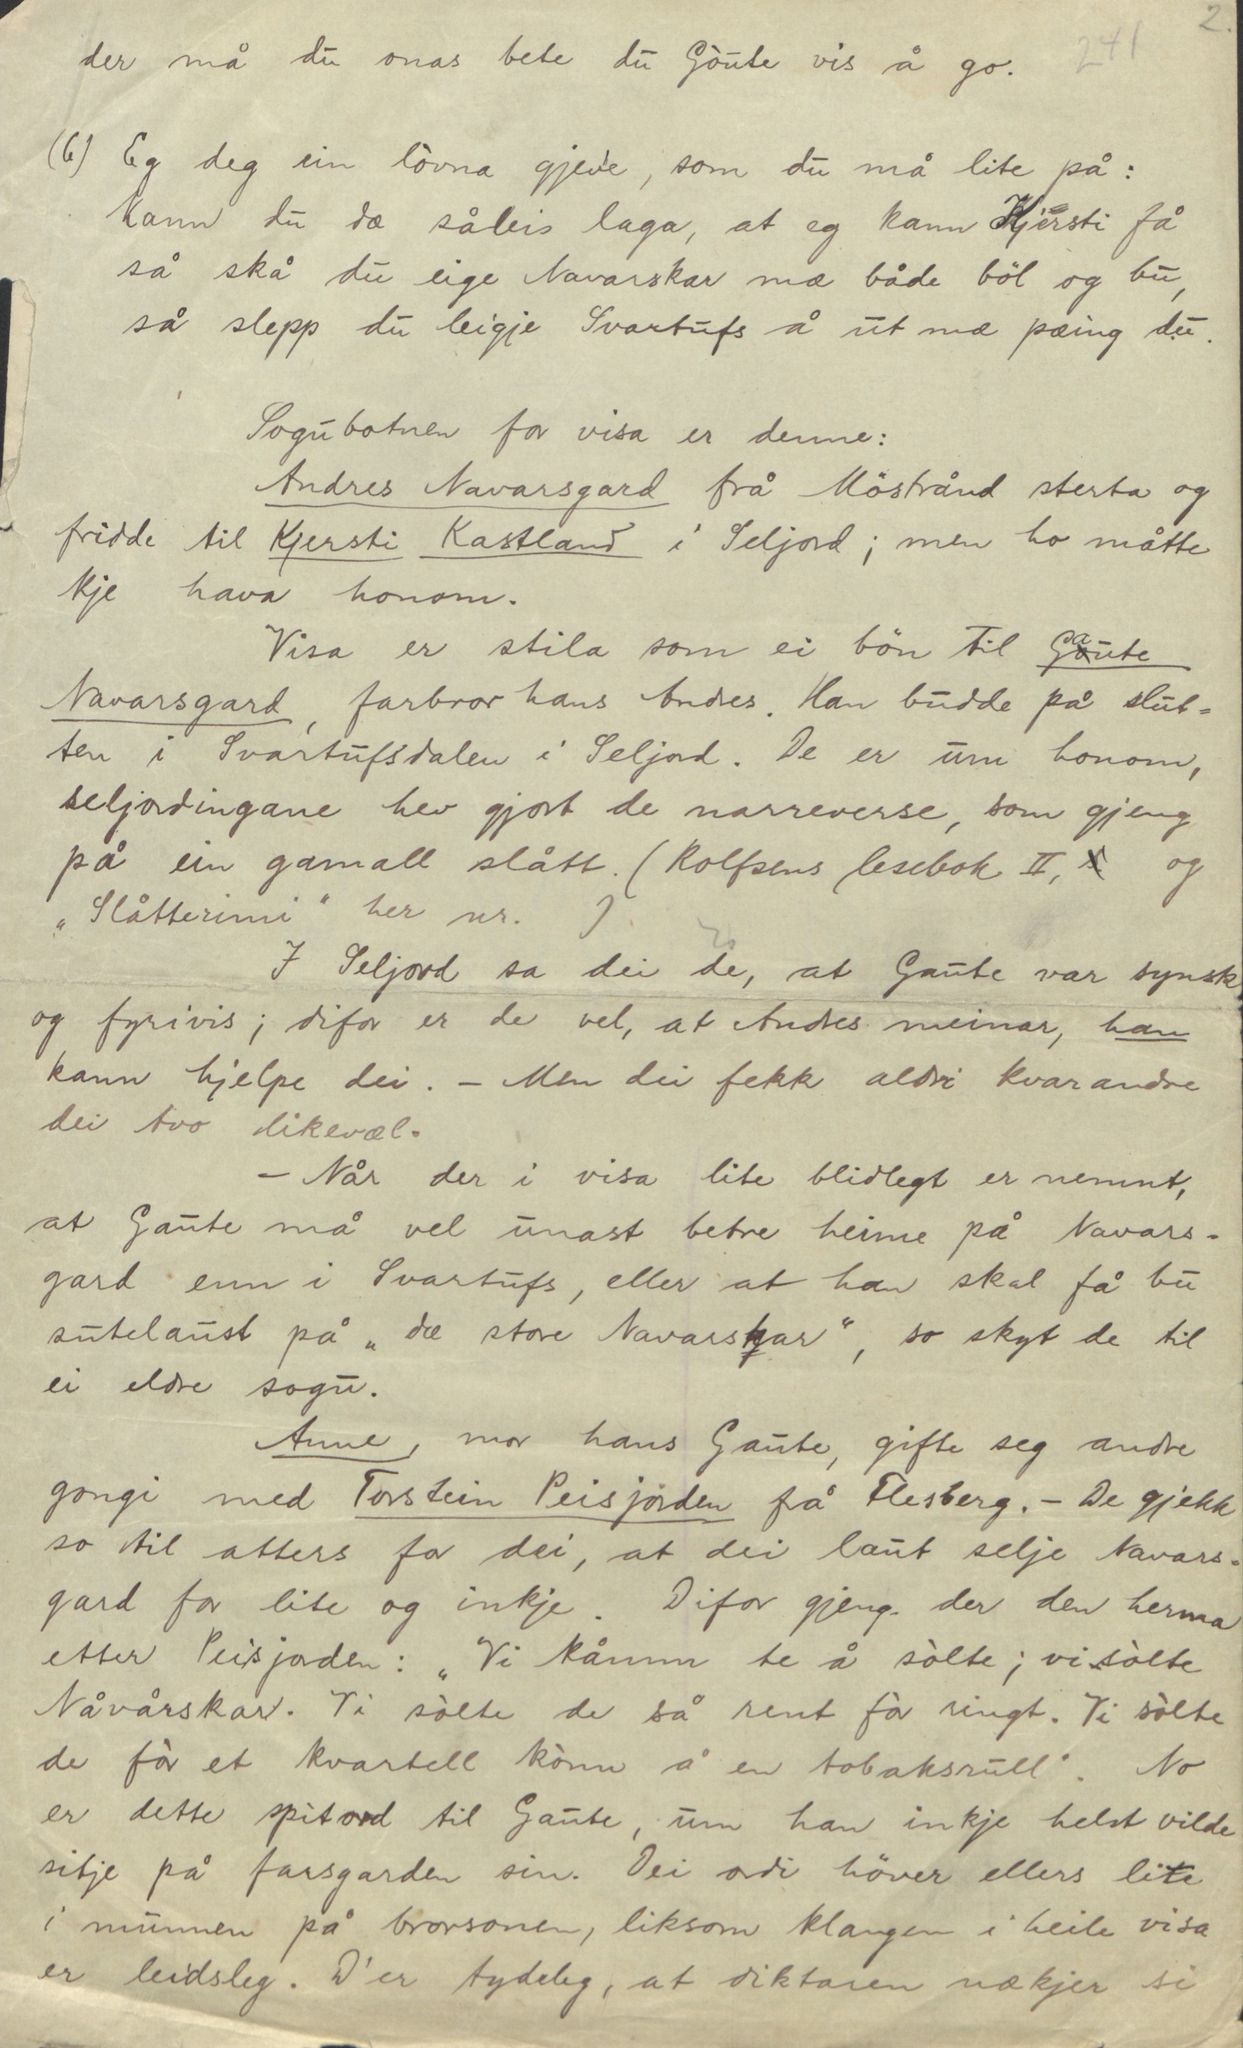 2.
241
der må du onas bete du Gòute vis å go.
(6) Eg deg ein lòvna gjeve, som du må lite på:
kann du dæ såleis laga, at eg kann Kjersti få
så skå du eige Navarskar mæ både böl og bu,
så slepp du leigje Svartufs å ut mæ pæing du.
Sogubotnen for visa er denne:
Andres Navarsgard frå Möstrånd sterta og
fridde til Kjersti Kastland i Seljord; men ho måtte
kje hava honom.
Visa er stila som ei bön til Gaute
Navarsgard, farbror hans Andres. Han budde på slut-
ten i Svartufsdalen i Seljord. De er um honom,
seljordingane hev gjort de narreverse, som gjeng
på ein gamall slått. (Rolfsens lesebok II, og
„Slåtterimi" her nr. )
I Seljord sa dei de, at Gaute var synsk
og fyrivis; difor er de vel, at Andres meinar, han
kann hjelpe dei. - Men dei fekk aldri kvarandre
dei tvo likevæl.
- Når der i visa lite blidlegt er nemnt,
at Gaute må vel unast betre heime på Navars-
gard enn i Svartufs, eller at han skal få bu
sutelaust på „dæ store Navarskar", so skyt de til
ei eldre sogu.
Anne, mor hans Gaute, gifte seg andre
gongi med Torstein Peisjorden frå Flesberg. - De gjekk
so til atters for dei, at dei laut selje Navars-
gard for lite og inkje. Difor gjeng der den herma
etter Peisjorden: „Vi kåmm te å sòlte; vi sòlte
Nåvårskar. Vi sòlte de så rent fòr ringt. Vi sòlte
de fòr et kvartell kònn å en tobaksrull". No
er dette spitord til Gaute, um han inkje helst vilde
sitje på farsgarden sin. Dei ordi höver ellers lite
i munnen på brorsonen, liksom klangen i heile visa
er leidsleg. D'er tydeleg, at diktaren nækjer si